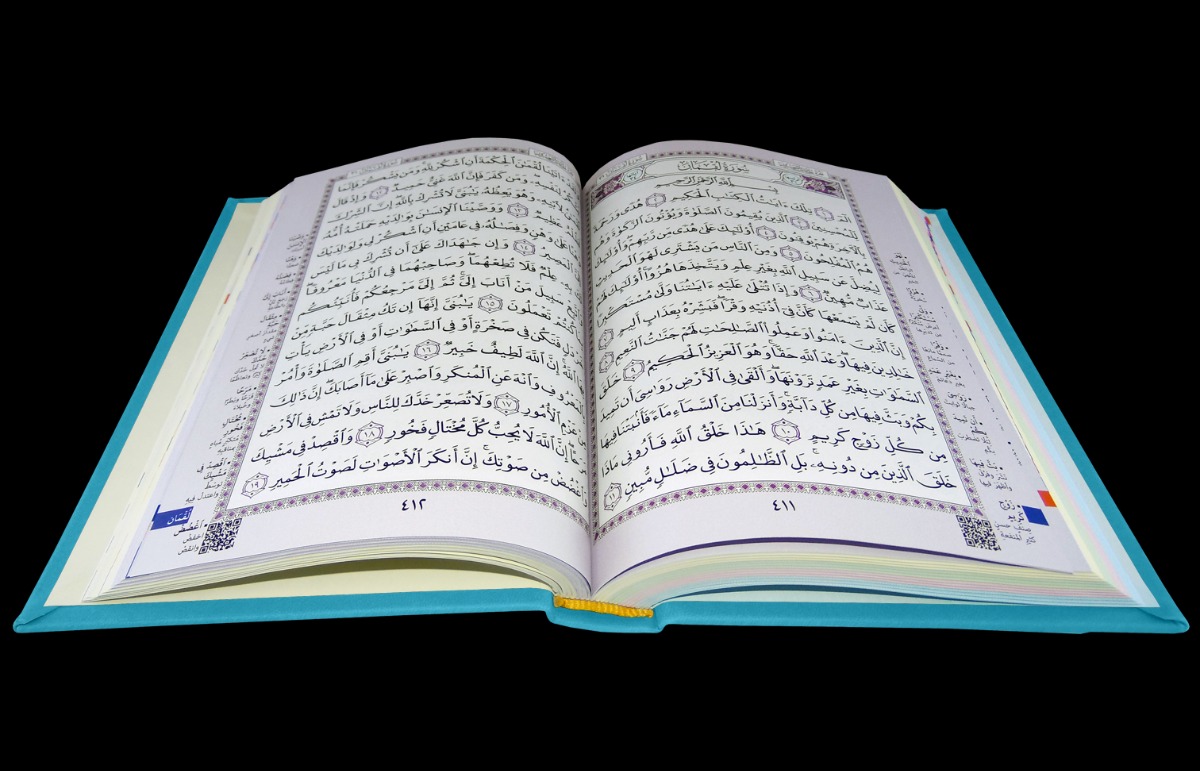 سُورَةُ لُقْمَانَ
بِسْمِ ٱللَّهِ ٱلرَّحْمَٰنِ ٱلرَّحِيمِ
الٓمٓ ١ تِلْكَ ءَايَٰتُ ٱلْكِتَٰبِ ٱلْحَكِيمِ ٢ هُدًى وَرَحْمَةً
لِّلْمُحْسِنِينَ ٣ ٱلَّذِينَ يُقِيمُونَ ٱلصَّلَوٰةَ وَيُؤْتُونَ ٱلزَّكَوٰةَ وَهُم
بِٱلْءَاخِرَةِ هُمْ يُوقِنُونَ ٤ أُو۟لَٰٓئِكَ عَلَىٰ هُدًى مِّن رَّبِّهِمْ وَأُو۟لَٰٓئِكَ
هُمُ ٱلْمُفْلِحُونَ ٥ وَمِنَ ٱلنَّاسِ مَن يَشْتَرِى لَهْوَ ٱلْحَدِيثِ
لِيُضِلَّ عَن سَبِيلِ ٱللَّهِ بِغَيْرِ عِلْمٍ وَيَتَّخِذَهَا هُزُوًا أُو۟لَٰٓئِكَ لَهُمْ
عَذَابٌ مُّهِينٌ ٦ وَإِذَا تُتْلَىٰ عَلَيْهِ ءَايَٰتُنَا وَلَّىٰ مُسْتَكْبِرًا
كَأَن لَّمْ يَسْمَعْهَا كَأَنَّ فِىٓ أُذُنَيْهِ وَقْرًا فَبَشِّرْهُ بِعَذَابٍ أَلِيمٍ ٧
إِنَّ ٱلَّذِينَ ءَامَنُوا۟ وَعَمِلُوا۟ ٱلصَّٰلِحَٰتِ لَهُمْ جَنَّٰتُ ٱلنَّعِيمِ ٨
خَٰلِدِينَ فِيهَا وَعْدَ ٱللَّهِ حَقًّا وَهُوَ ٱلْعَزِيزُ ٱلْحَكِيمُ ٩ خَلَقَ
ٱلسَّمَٰوَٰتِ بِغَيْرِ عَمَدٍ تَرَوْنَهَا وَأَلْقَىٰ فِى ٱلْأَرْضِ رَوَٰسِىَ أَن تَمِيدَ
بِكُمْ وَبَثَّ فِيهَا مِن كُلِّ دَآبَّةٍ وَأَنزَلْنَا مِنَ ٱلسَّمَآءِ مَآءً فَأَنۢبَتْنَا فِيهَا
مِن كُلِّ زَوْجٍ كَرِيمٍ ١٠ هَٰذَا خَلْقُ ٱللَّهِ فَأَرُونِى مَاذَا
خَلَقَ ٱلَّذِينَ مِن دُونِهِۦ بَلِ ٱلظَّٰلِمُونَ فِى ضَلَٰلٍ مُّبِينٍ ١١
٤١١
ءَاتَيْنَا لُقْمَٰنَ ٱلْحِكْمَةَ أَنِ ٱشْكُرْ لِلَّهِ وَمَن يَشْكُرْ فَإِنَّمَا
لِنَفْسِهِۦ وَمَن كَفَرَ فَإِنَّ ٱللَّهَ غَنِىٌّ حَمِيدٌ ١٢ وَإِذْ قَالَ
لِٱبْنِهِۦ وَهُوَ يَعِظُهُۥ يَٰبُنَىَّ لَا تُشْرِكْ بِٱللَّهِ إِنَّ ٱلشِّرْكَ
عَظِيمٌ ١٣ وَوَصَّيْنَا ٱلْإِنسَٰنَ بِوَٰلِدَيْهِ حَمَلَتْهُ أُمُّهُۥ
عَلَىٰ وَهْنٍ وَفِصَٰلُهُۥ فِى عَامَيْنِ أَنِ ٱشْكُرْ لِى وَلِوَٰلِدَيْكَ
ٱلْمَصِيرُ ١٤ وَإِن جَٰهَدَاكَ عَلَىٰٓ أَن تُشْرِكَ بِى مَا لَيْسَ
عِلْمٌ فَلَا تُطِعْهُمَا وَصَاحِبْهُمَا فِى ٱلدُّنْيَا مَعْرُوفًا
سَبِيلَ مَنْ أَنَابَ إِلَىَّ ثُمَّ إِلَىَّ مَرْجِعُكُمْ فَأُنَبِّئُكُم
كُنتُمْ تَعْمَلُونَ ١٥ يَٰبُنَىَّ إِنَّهَآ إِن تَكُ مِثْقَالَ حَبَّةٍ مِّنْ
خَرْدَلٍ فَتَكُن فِى صَخْرَةٍ أَوْ فِى ٱلسَّمَٰوَٰتِ أَوْ فِى ٱلْأَرْضِ يَأْتِ
ٱللَّهُ إِنَّ ٱللَّهَ لَطِيفٌ خَبِيرٌ ١٦ يَٰبُنَىَّ أَقِمِ ٱلصَّلَوٰةَ وَأْمُرْ
بِٱلْمَعْرُوفِ وَٱنْهَ عَنِ ٱلْمُنكَرِ وَٱصْبِرْ عَلَىٰ مَآ أَصَابَكَ إِنَّ ذَٰلِكَ
مِنْ عَزْمِ ٱلْأُمُورِ ١٧ وَلَا تُصَعِّرْ خَدَّكَ لِلنَّاسِ وَلَا تَمْشِ فِى ٱلْأَرْضِ
مَرَحًا إِنَّ ٱللَّهَ لَا يُحِبُّ كُلَّ مُخْتَالٍ فَخُورٍ ١٨ وَٱقْصِدْ فِى مَشْيِكَ
وَٱغْضُضْ مِن صَوْتِكَ إِنَّ أَنكَرَ ٱلْأَصْوَٰتِ لَصَوْتُ ٱلْحَمِيرِ ١٩
٤١٢
لُقْمَان